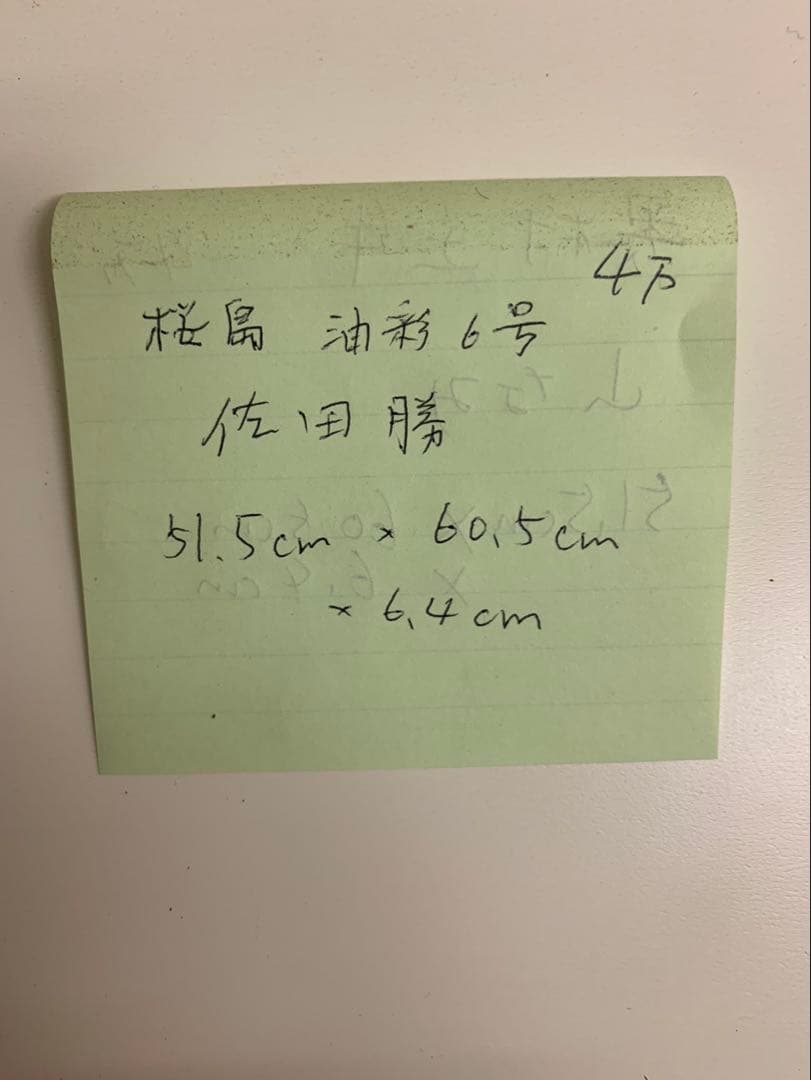 4万
桜島 油彩6号
佐田勝
51.5cm × 60.5cm
× 6.4cm